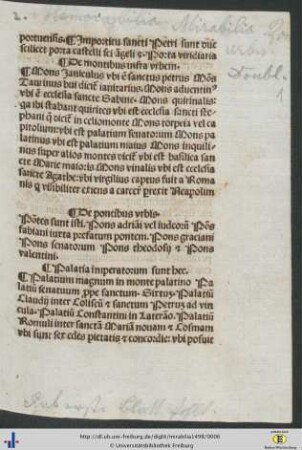 2. Memorabilia Mirabilia Rom
urbis
Doubl.
1
portuensis. ¶ In porticu sancti Petri sunt due
scilicet porta castelli sci ãgeli ⁊ Porta viridaria
¶ De montibus infra vrbem.
¶ Mons Janiculus vbi ẽ sanctus petrus Mõs
Taurinus dui dicif ianitarius. Mons aduentinꝰ
vbi ẽ ecclesia sancte Sabine. Mons quirinalis:
ga ibi stabant quirites vbi est ecclesia sancti ste-
phani q̄ dicif in celiomonte Mons torpeia vel ca
pitolium: vbi est palatium senatorum Mons pa
latinus vbi est palatium maius Mons inquili-
nus super alios montes vicif vbi est basilica san
cte Marie maioris Mons vinalis vbi est ecclesia
sancte Agathe: vbi virgilius captus fuit a Roma
nis q̄ visibiliter exiens a carcer prexit Neapolim
¶ De pontibus vrbis.
Põtes sunt isti. Pons adriãi vel iudeorũ Põs
fabiani iuxta prefatum pontem. Pons graciani
Pons senatorum Pons theodosij ⁊ Pons
valentini.
¶ Palatia imperatorum sunt hec.
¶ Palatium magnum in monte palatino Pa
latiũ senatuum ppe sanctum Sirtus. Palatiũ
Claudij inter Coliseũ ⁊ sanctum Petrus ad vin
cula. Palatiũ Constantini in Laterão. Palatiũ
Romuli inter sanctã Mariã nouam ⁊ Cosmam
vbi sunt sex edes pietatis ⁊ concordie: vbi posuit
http://dl.ub.uni-freiburg.de/diglit/mirabilia1498/0006
© Universitätsbibliothek Freiburg